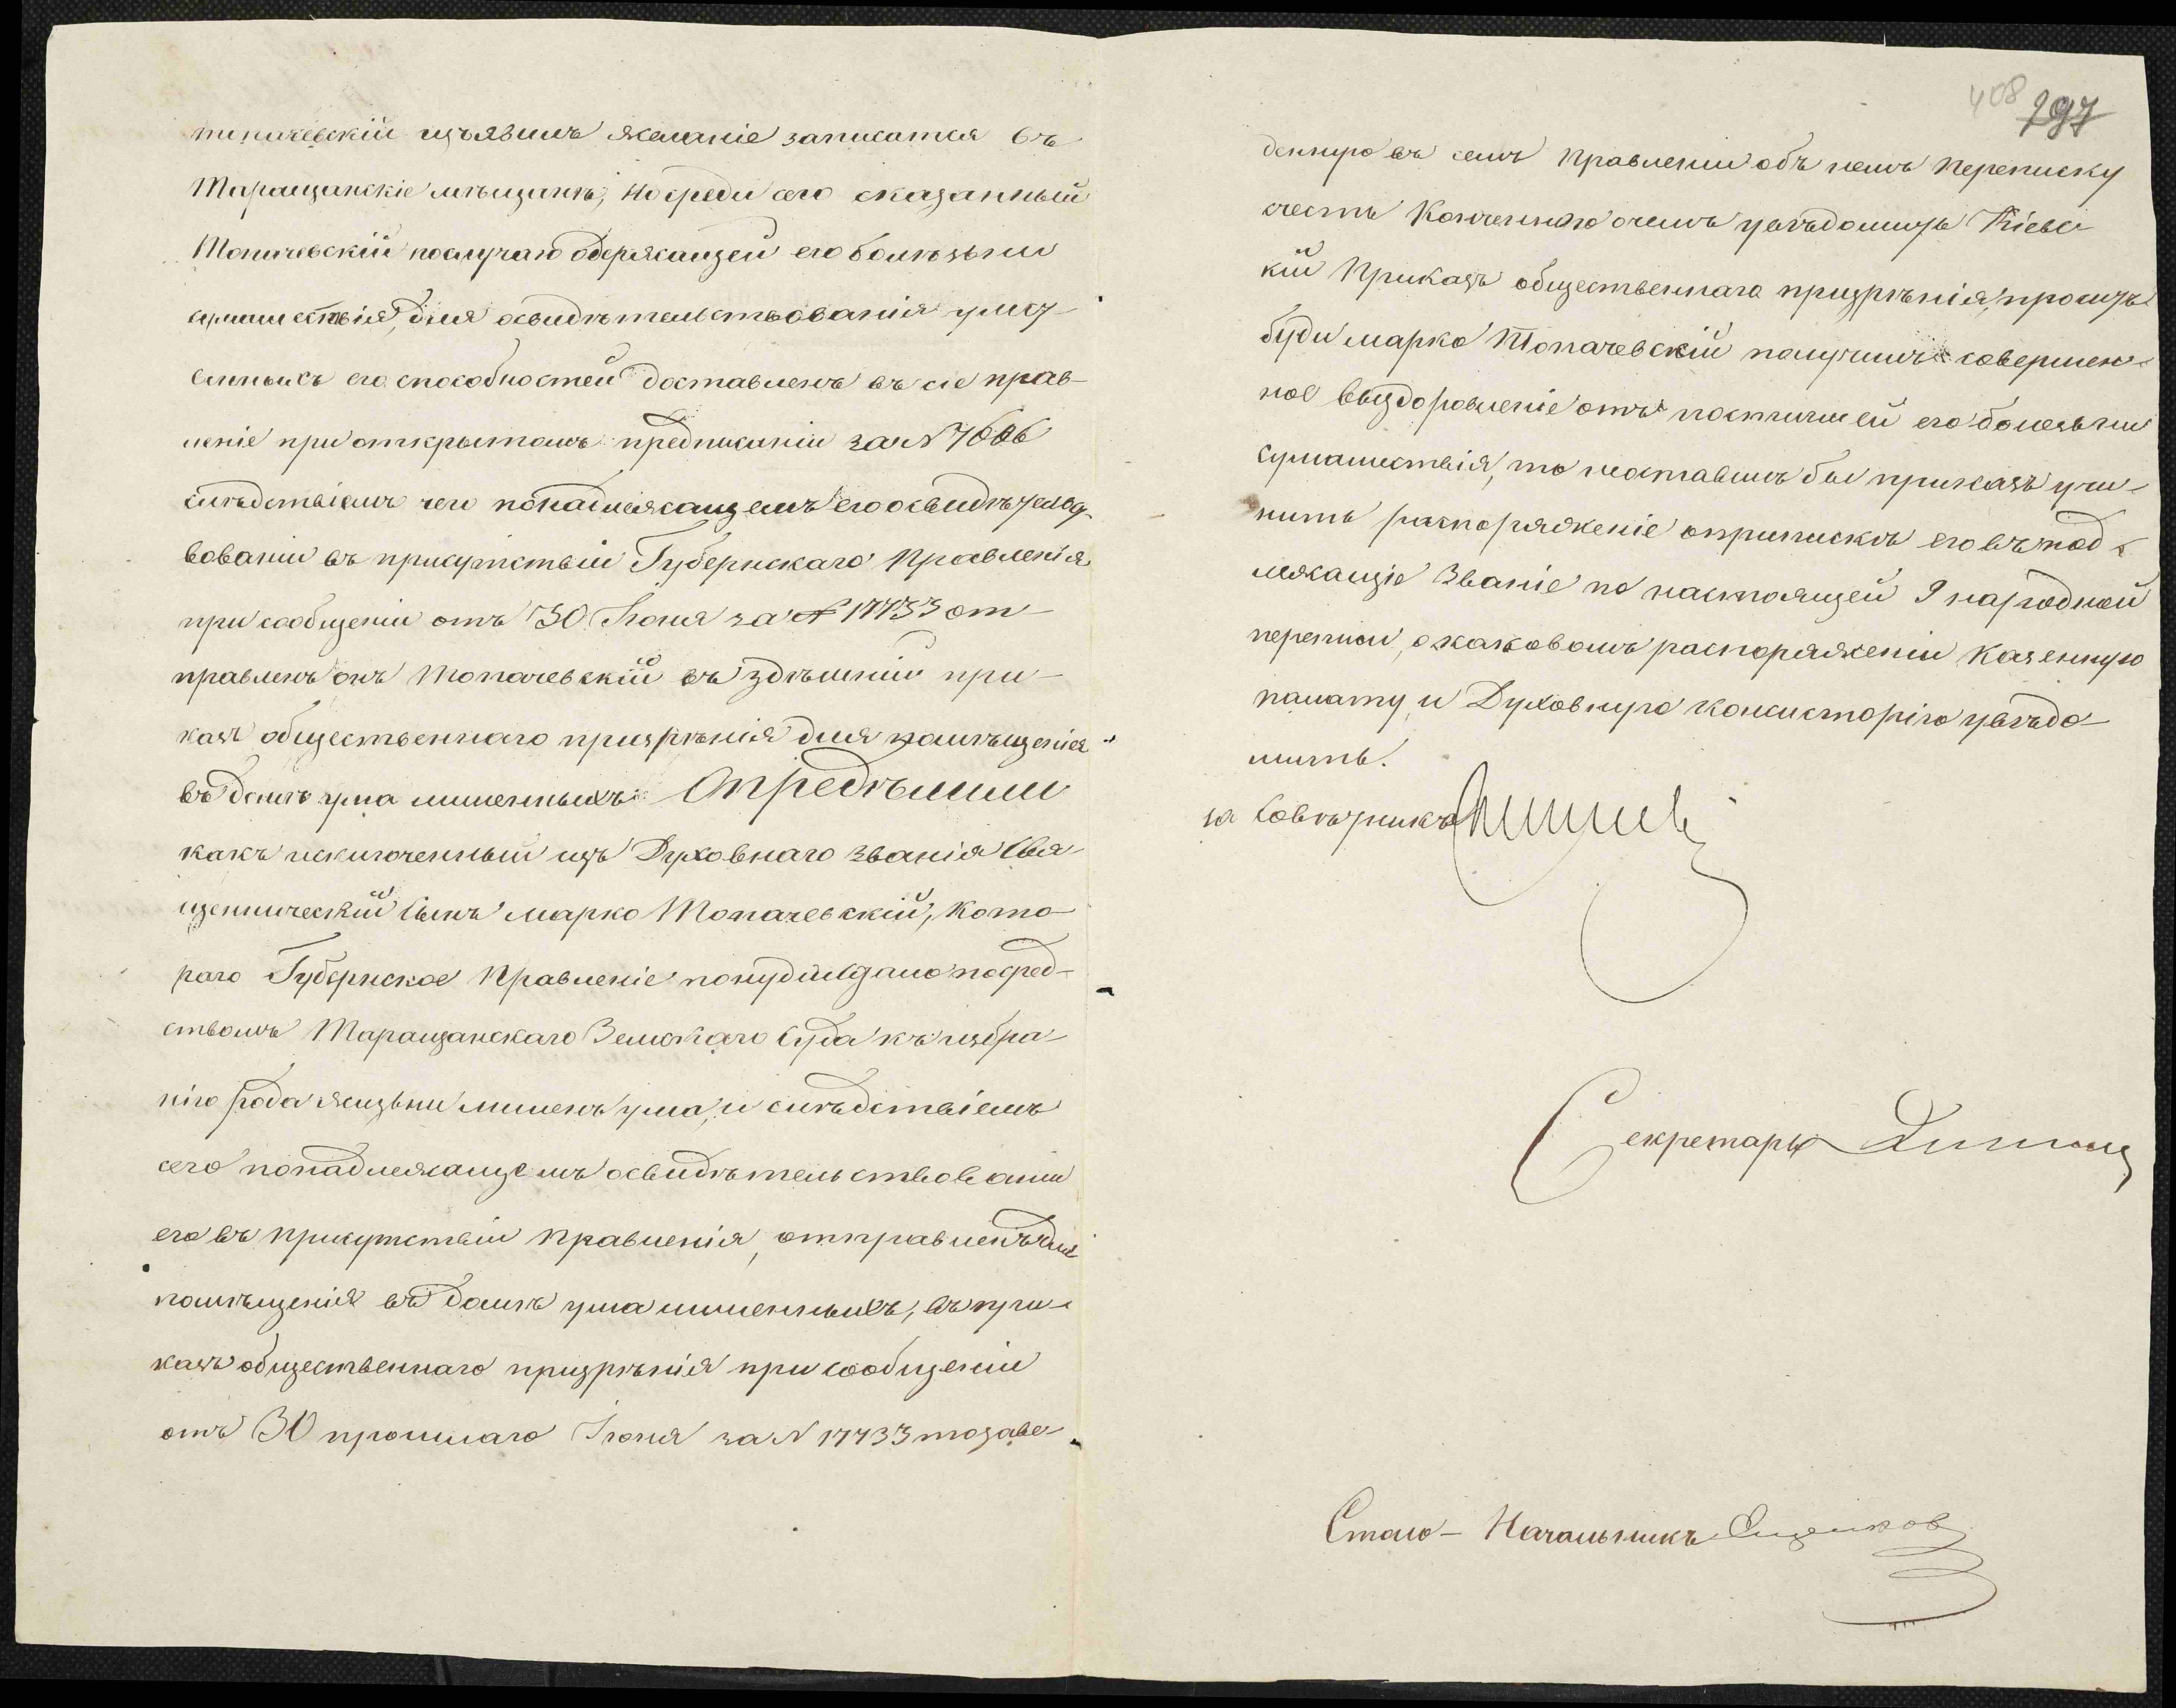 топачевскій изъявилъ желаніе записатся въ
Таращанскіе мѣщанѣ, но среди сего сказанный
Топачевскій послучаю одержащей его болѣзьни
сумашествія, для освидѣтельствованія умст
веннысъ его способностей доставленъ въ сіе прав-
леніе при открытомъ предписаніи за N 7606
слѣдствіемъ чего понадлежащемъ его освидѣтельст
вованіи въ присутствіи Губернскаго Правленія
при сообщеніи отъ 30 Іюня за N 17733 от-
правленъ онъ Топачевскій въ здѣшній при-
казъ общественнаго призрѣнія для помѣщенія
въ домъ ума лишенныхъ. Опредѣлили
какъ исключенный изъ Духовнаго званія Свя-
щенническій сынъ Марко Топачевскій, кото-
раго Губернское Правленіе понуждало посред-
ствомъ Таращанскаго Земскаго Суда къ избра-
нію рода жизьни лишенъ ума, и слѣдствіемъ
сего понадлежащемъ освидѣтельствованіи
его въ присутствіи Правленія, отправленъ для
помѣщенія въ домъ ума лишенныхъ, въ при-
казъ общественнаго призрѣнія при сообщеніи
отъ 30 прошлаго Іюня за N 17733 то заве-
408 297
денную въ семъ Правленіи объ немъ переписку
счесть Конченною очемъ увѣдомить Кіевс
кій Приказъ общественнаго призрѣнія, просить
буди Марко Топачевскій получитъ совершен-
ное выздоровленіе отъ постигшей его болезьни
сумашествія, то неоставилъ бы приказъ учи-
нить распоряженіе оприпискѣ его въ под
лежащіе званіе по настоящей 9 народной
переписи, о каковомъ распоряженіи казенную
палату и Духовную консисторію увѣдо-
мить.
за Совѣтника
Секретарь
Столо-Начальникъ